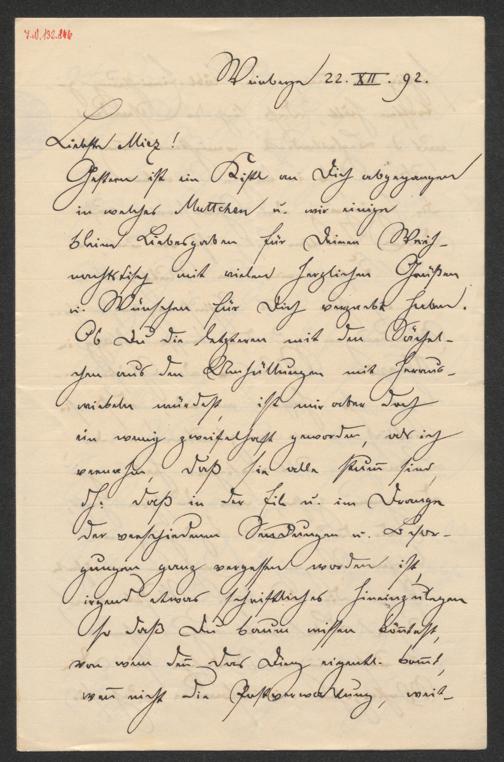 I.N. 132.846
Weinberge 22. XII. 92.
Liebste Miez!
Gestern ist ein Kistl an Dich abgegangen
in welches Muttchen u. wir einige
kleine Liebesgaben für Deinen Weih-
nachtstisch mit vielen herzlichen Grüßen
u. Wünschen für Dich verpackt haben.
Ob Du die letzteren mit den Sächel-
chen aus den Umhüllungen mit heraus-
wickeln würdest, ist mir aber doch
ein wenig zweifelhaft geworden, als ich
vernahm, daß sie alle stum̅ sind,
dh: daß in der Eile u. im Drange
der verschiedenen Sendungen u. Besor-
gungen ganz vergessen worden ist,
irgend etwas schriftliches hineinzulegen
so daß Du kaum wissen kön̅test,
von wem den̅ das Ding eigentl. kom̅t,
wen̅ nicht die Postverwaltung, weit-